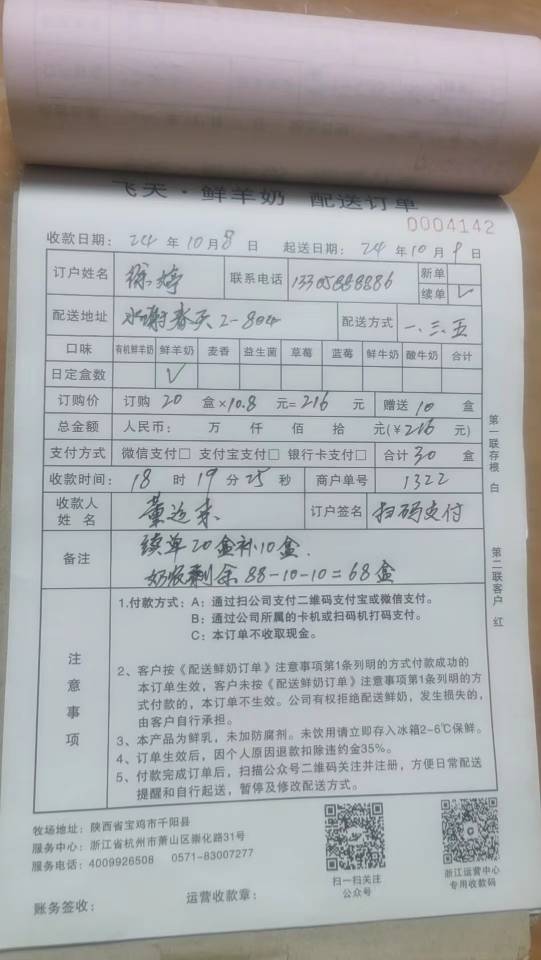 飞天·鲜羊奶 配送订单
0004142
收款日期：24年10月8日 起送日期：24年10月9日
订户姓名 徐婷 联系电话 13305888886 新单
续单 ✓
配送地址 水谢春天2-804 配送方式 一、三、五
口味 有机鲜羊奶 鲜羊奶 麦香 益生菌 草莓 蓝莓 鲜牛奶 酸牛奶 合计
日定盒数 ✓
订购价 订购 20 盒×10.8元=216元 赠送 10 盒
总金额 人民币： 万 仟 佰 拾 元(￥216元)
支付方式 微信支付□ 支付宝支付□ 银行卡支付□ 合计 30 盒
收款时间： 18时19分25秒 商户单号 1322
收款人姓名 董 订户签名 扫码支付
备注 续单20盒补10盒.
奶收剩余 88-10-10=68盒
注意事项
1.付款方式：A：通过扫公司支付二维码支付宝或微信支付。
B：通过公司所属的卡机或扫码机打码支付。
C：本订单不收取现金。
2、客户按《配送鲜奶订单》注意事项第1条列明的方式付款成功的
本订单生效，客户未按《配送鲜奶订单》注意事项第1条列明的方
式付款的，本订单不生效。公司有权拒绝配送鲜奶，发生损失的，
由客户自行承担。
3、本产品为鲜乳，未加防腐剂。未饮用请立即存入冰箱2-6℃保鲜。
4、订单生效后，因个人原因退款扣除违约金35%。
5、付款完成订单后，扫描公众号二维码关注并注册，方便日常配送
提醒和自行起送，暂停及修改配送方式。
第一联存根 白
第二联客户 红
牧场地址：陕西省宝鸡市千阳县
服务中心：浙江省杭州市萧山区崇化路31号
服务电话：4009926508 0571-83007277
扫一扫关注
公众号
浙江运营中心
专用收款码
账务签收： 运营收款章：